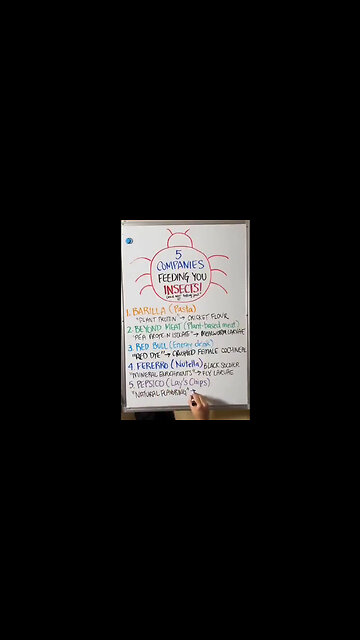 5
COMPANIES
FEEDING YOU
INSECTS!
1. BARILLA (Pasta)
"PLANT PROTEIN" → CRICKET FLOUR
2. BEYOND MEAT (Plant-based meat)
"PEA PROTEIN ISOLATE" → MEALWORM LARVAE
3. RED BULL (Energy drink)
"RED DYE" → CRUSHED FEMALE COCHINEAL
4. FERERRO (Nutella) BLACK SOLDIER
"MINERAL ENRICHMENTS" → FLY LARVAE
5. PEPSICO (Lay's Chips)
"NATURAL FLAVORING" →